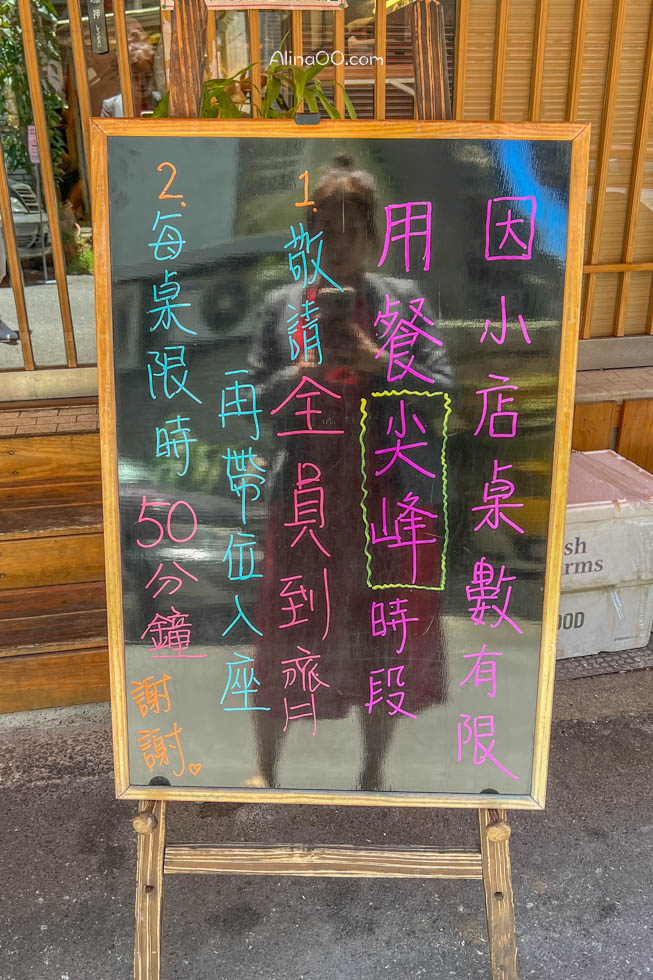 AlinaOO.com
因小店桌數有限
用餐尖峰時段
1.敬請全員到齊
再帶位入座
2.每桌限時50分鐘
謝謝。
sh
rms
OOD